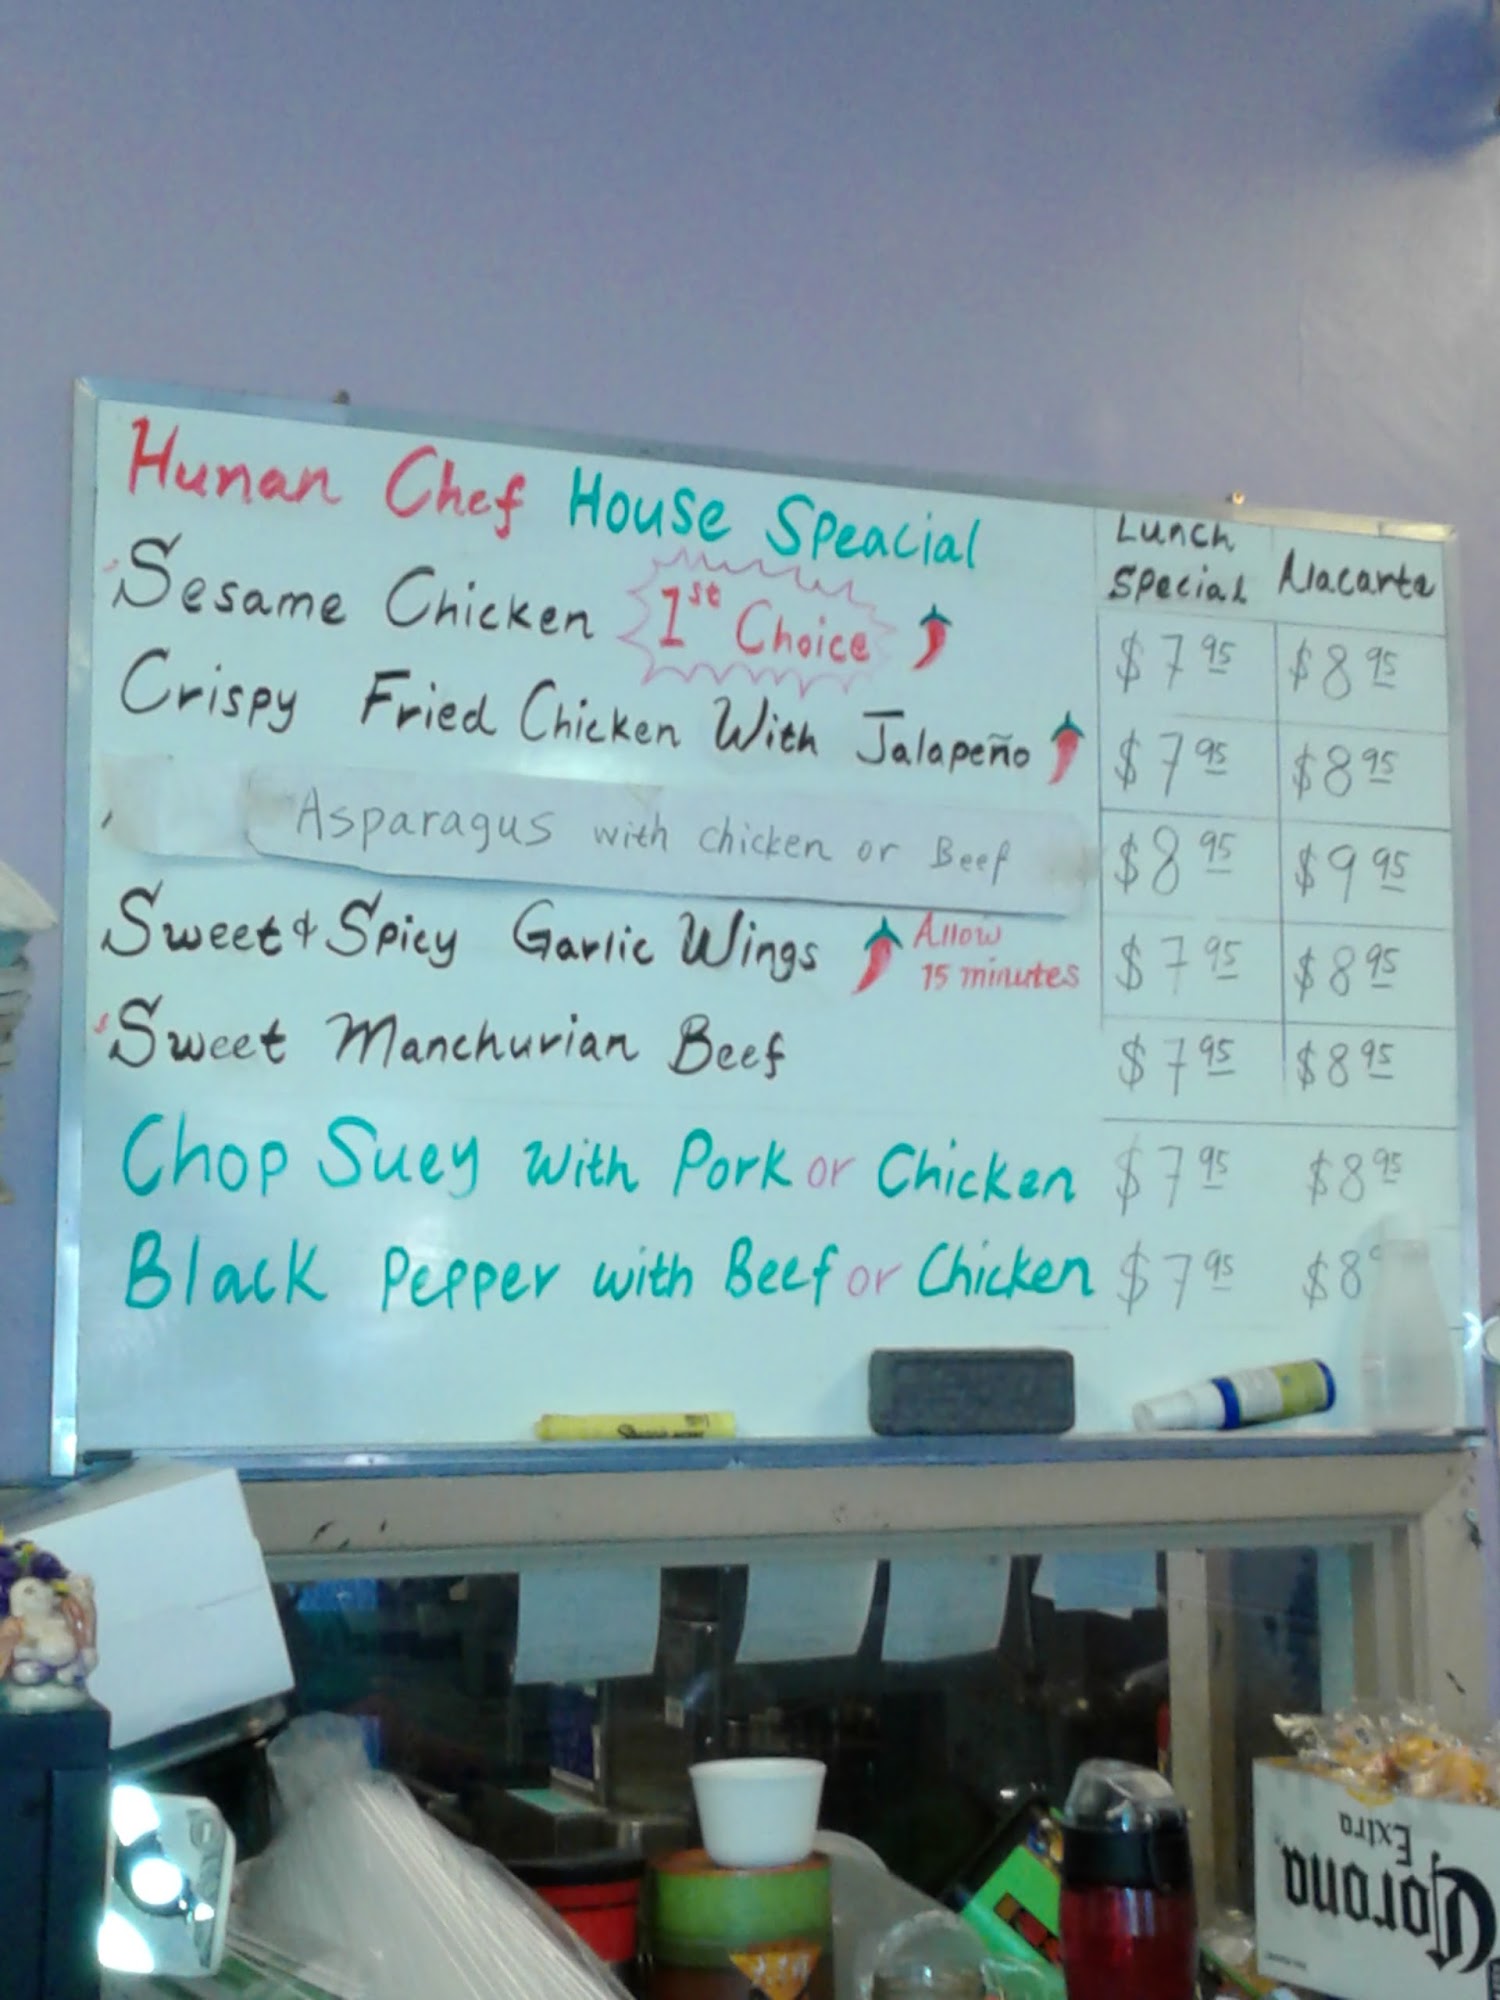 Hunan Chef House Speacial
Lunch Special Alacarte
Sesame Chicken 1st Choice $7 95 $8 95
Crispy Fried Chicken With Jalapeño $7 95 $8 95
Asparagus with chicken or Beef $8 95 $9 95
Sweet & Spicy Garlic Wings Allow 15 minutes $7 95 $8 95
Sweet Manchurian Beef $7 95 $8 95
Chop Suey with Pork or Chicken $7 95 $8 95
Black Pepper with Beef or Chicken $7 95 $8
Corona
Extra